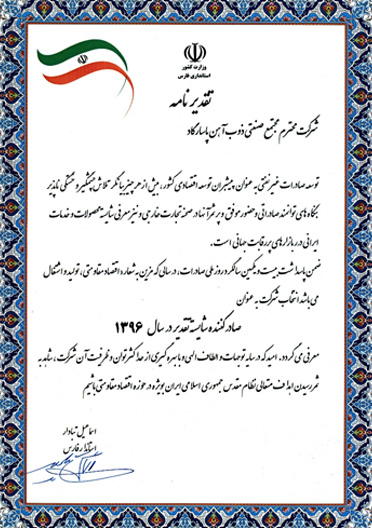 وزارت کشور
استانداری فارس
تقدیر نامه
شرکت محترم مجتمع صنعتی ذوب آهن پاسارگاد
توسعه صادرات غیرنفتی به عنوان پیشران توسعه اقتصادی کشور، بیش از هر چیز بیانگر تلاش پیگیر و خستگی ناپذیر
بنگاه های توانمند صادراتی و حضور موفق و پرثمر آنها در صحنه تجارت خارجی و نیز معرفی شایسته محصولات و خدمات
ایرانی در بازارهای پر رقابت جهانی است.
ضمن پاسداشت بیست و یکمین سالگرد روز ملی صادرات، در سالی که مزین به شعار، اقتصاد مقاومتی، تولید و اشتغال
می باشد انتخاب شرکت به عنوان
صادرکننده شایسته تقدیر در سال ۱۳۹۶
معرفی می گردد. امید که در سایه توجهات و الطاف الهی و با بهره گیری از حداکثر توان و ظرفیت آن شرکت، شاهد به
ثمر رسیدن اهداف متعالی نظام مقدس جمهوری اسلامی ایران بویژه در حوزه اقتصاد مقاومتی باشیم
اسماعیل تبادار
استاندار فارس